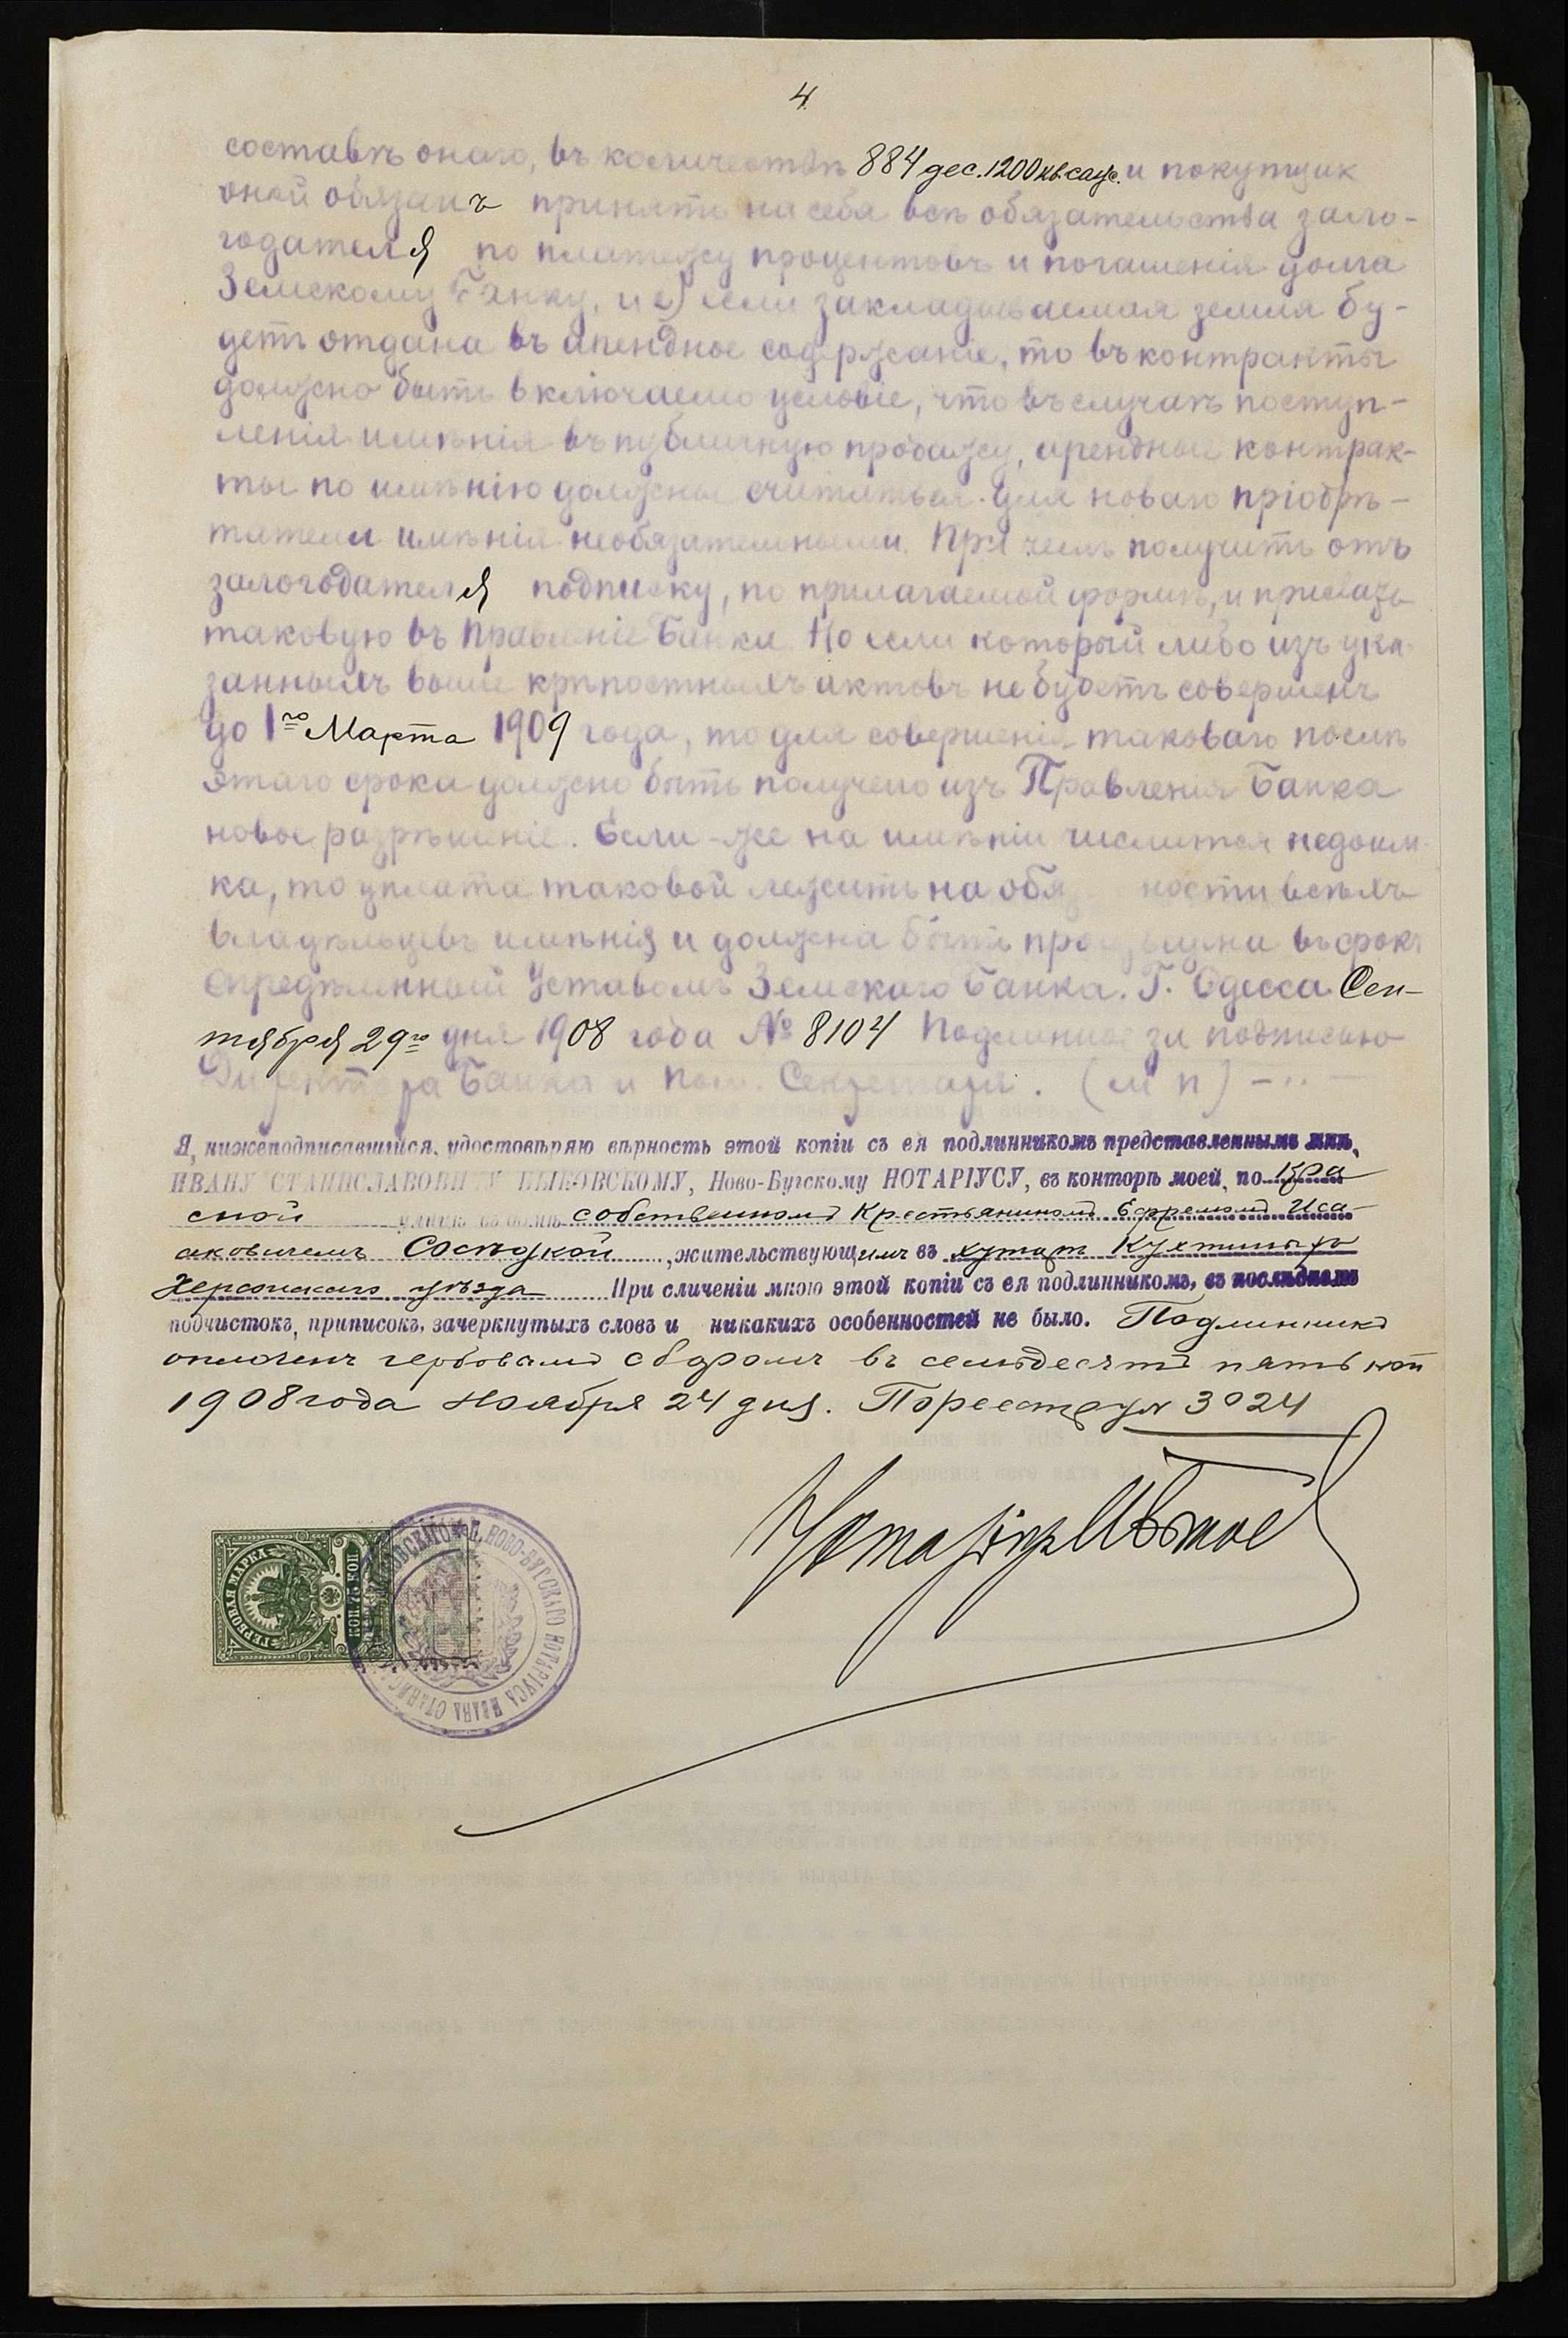 4
составѣ онаго, въ количествѣ 884 дес. 1200 кв. саж. и покупщик
оной обязанъ принять на себя всѣ обязательства зало-
годателя по платежу процентовъ и погашенія долга
Земскому Банку, и е) если закладываемая земля бу-
детъ отдана въ арендное содержаніе, то въ контракты
должно быть включаемо условіе, что въ случаѣ поступ-
ленія имѣнія въ публичную продажу, арендные контрак-
ты по имѣнію должны считаться для новаго пріобрѣ-
тателя имѣнія необязательными. При чемъ получить отъ
залогодателя подписку, по прилагаемой формѣ, и прислать
таковую въ Правленіе Банка. Но если который либо изъ ука-
занныхъ выше крѣпостныхъ актовъ не будетъ совершенъ
до 1го Марта 1909 года, то для совершенія таковаго послѣ
этаго срока должно быть получено изъ Правленія Банка
новое разрѣшеніе. Если-же на имѣніи числится недоим-
ка, то уплата таковой лежитъ на обя ности всѣхъ
владѣльцевъ имѣнія и должна быть произведена въ срокъ
опредѣленный Уставомъ Земскаго Банка. Г. Одесса Сен-
тября 29го дня 1908 года № 8104 Подлинное за подписью
Директора Банка и Пом. Секретаря. (м п)
Я, нижеподписавшійся, удостовѣряю вѣрность этой копіи съ ея подлинникомъ представленнымъ мнѣ,
ИВАНУ СТАНИСЛАВОВИЧУ БЫКОВСКОМУ, Ново-Бугскому НОТАРІУСУ, въ конторѣ моей, по Кра
сной улицѣ въ домѣ собственномъ Крестьяниномъ Ефремомъ Иса-
аковичемъ , жительствующимъ въ хуторѣ
Херсонскаго уѣзда При сличеніи мною этой копіи съ ея подлинникомъ, въ послѣднемъ
подчистокъ, приписокъ, зачеркнутыхъ словъ и никакихъ особенностей не было. Подлинникъ
оплоченъ гербовымъ сборомъ въ семьдесятъ пять коп
1908 года Ноября 24 дня. По реестру № 3024
Нотаріусъ
ГЕРБОВАЯ МАРКА
КОП. 75 КОП
НОВО-БУГСКАГО НОТАРІУСА ИВАНА СТАНИС